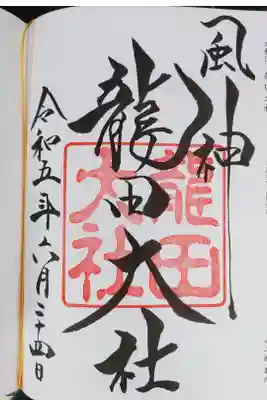 風神
龍田大社
龍田
大社
令和五年六月二十四日